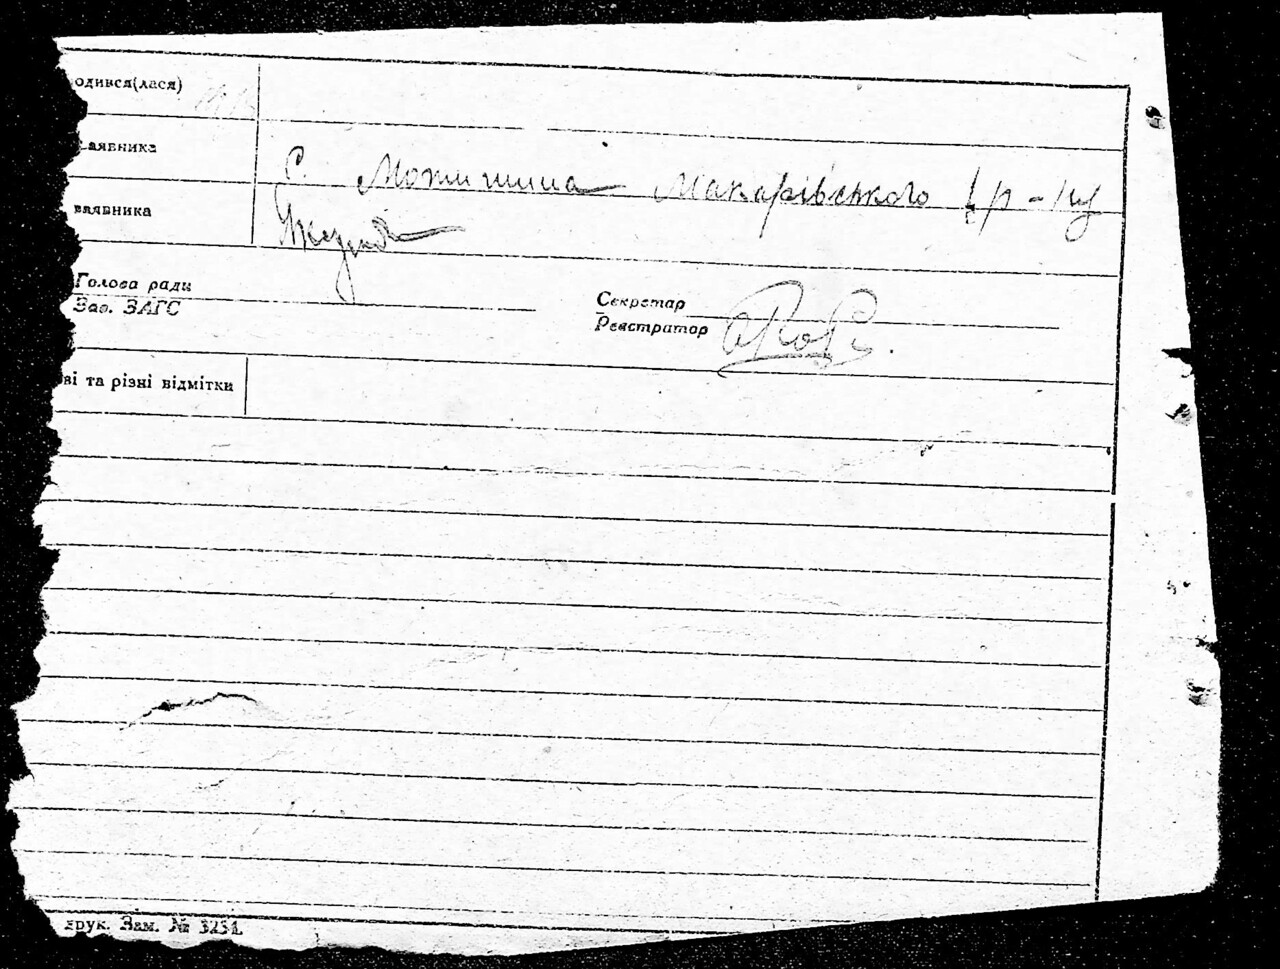 одився(лася)
заявника
с. Мотижина Макарівського р-ну
заявника
Голова ради
Зав. ЗАГС
Секретар
Реєстратор
ві та різні відмітки
друк. Зам. № 3234.